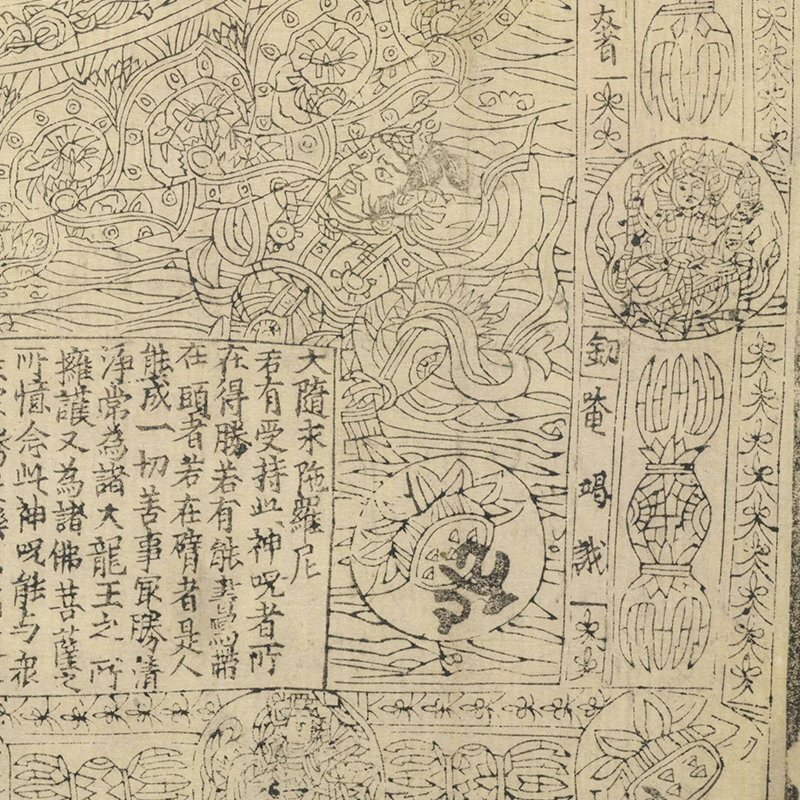 釰唵竭誐
大隨求陁羅尼
若有受持此神呪者所
在得勝若有能書寫帶
在頭者若在臂者是人
能成一切善事冣勝清
淨常為諸大龍王之所
擁護又為諸佛菩薩之
所憶念此神呪能与眾